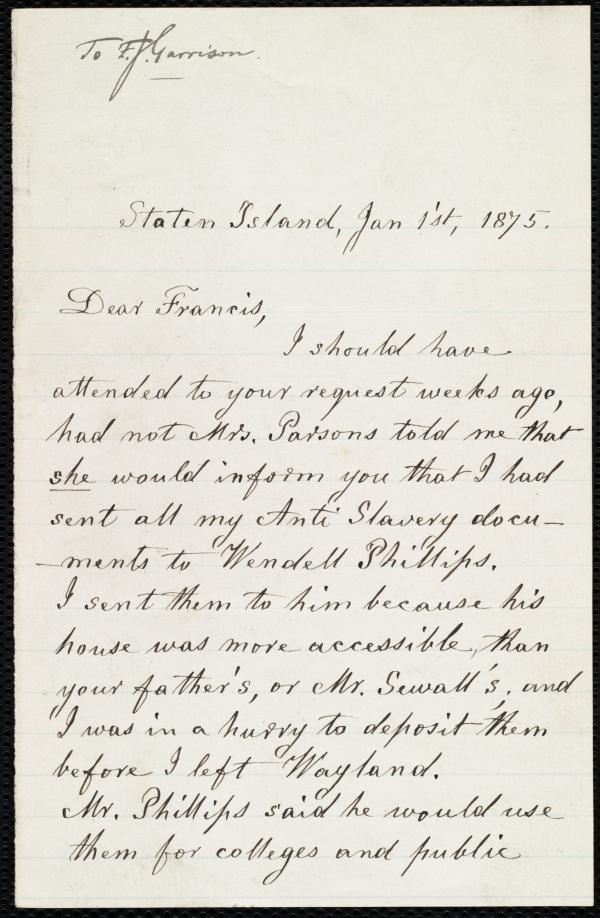 To F. J. Garrison.
Staten Island, Jan 1'st, 1875.
Dear Francis,
I should have
attended to your request weeks ago,
had not Mrs. Parsons told me that
she would inform you that I had
sent all my Anti Slavery docu-
-ments to Wendell Phillips.
I sent them to him because his
house was more accessible, than
your father's, or Mr. Sewall's, and
I was in a hurry to deposit them
before I left Wayland.
Mr. Phillips said he would use
them for colleges and public